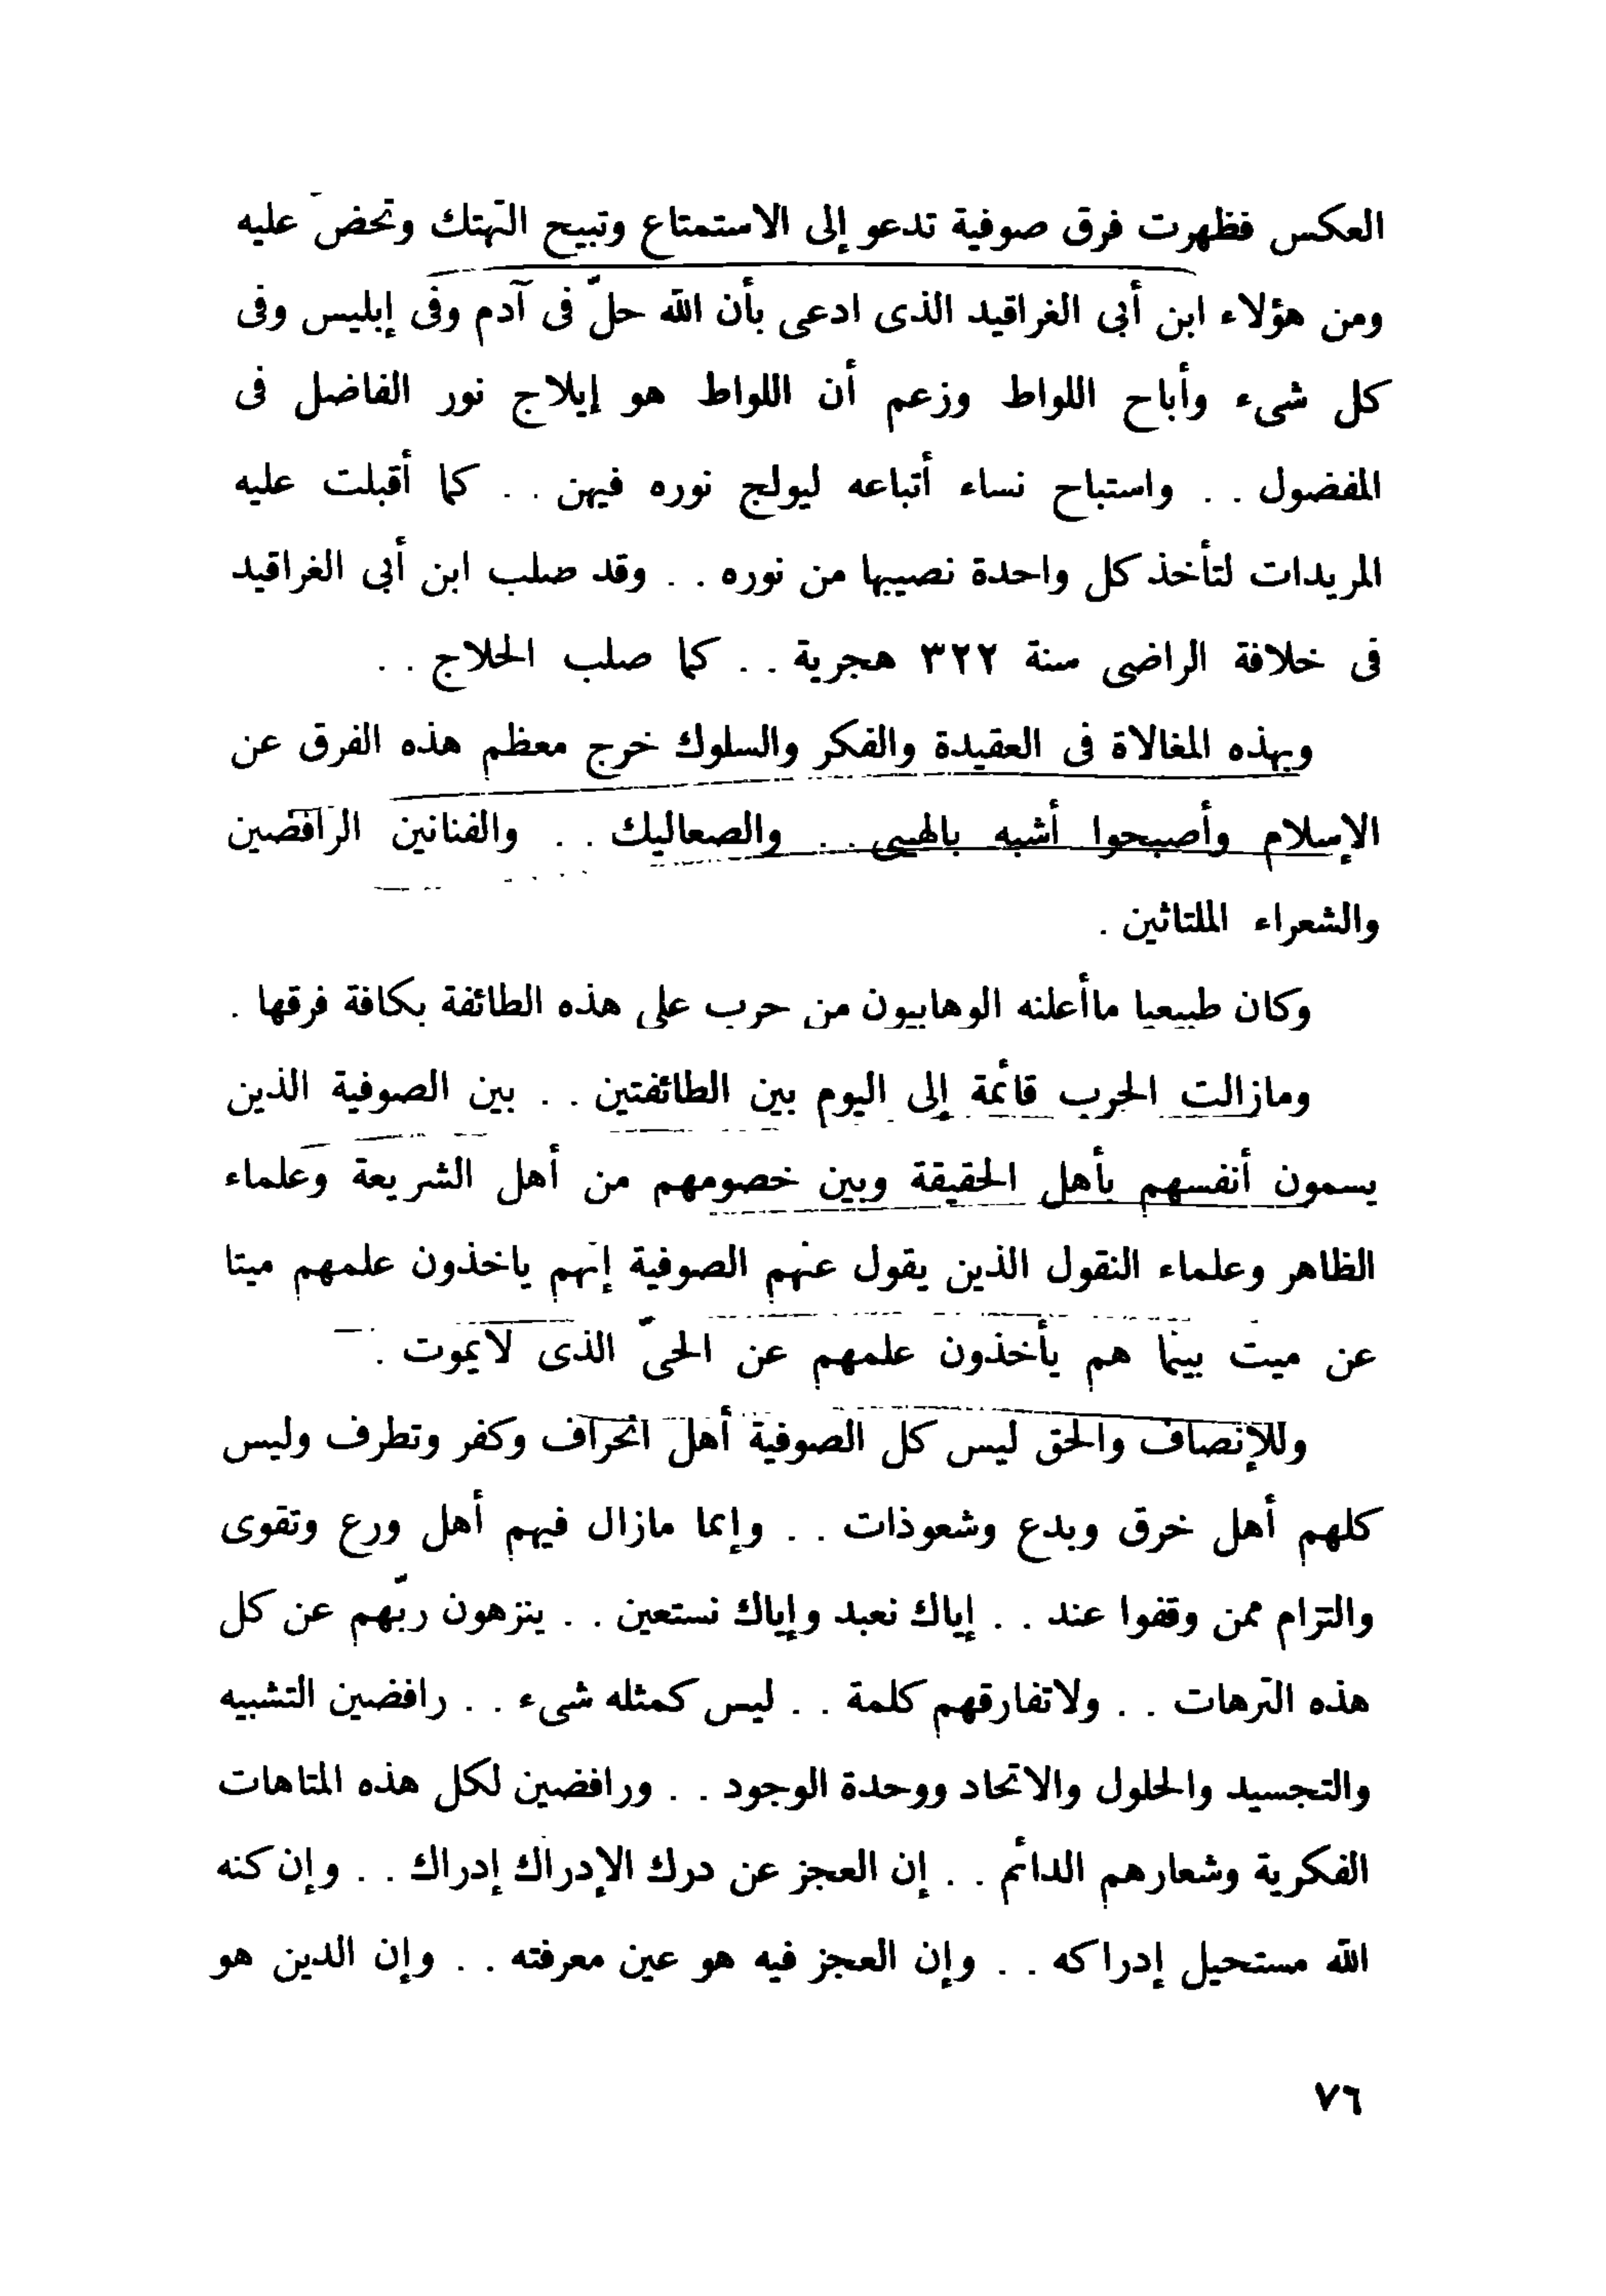 العكس فظهرت فرق صوفية تدعو إلى الاستمتاع وتبيح التهتك وتحض عليه
ومن هؤلاء ابن أبى الغراقيد الذى ادعى بأن الله حلّ فى آدم وفى إبليس وفى
كل شىء وأباح اللواط وزعم أن اللواط هو إيلاج نور الفاضل فى
المفضول . . واستباح نساء أتباعه ليولج نوره فيهن . . كما أقبلت عليه
المريدات لتأخذ كل واحدة نصيبها من نوره . . وقد صلب ابن أبى الغراقيد
فى خلافة الراضى سنة ٣٢٢ هجرية . . كما صلب الحلاج . .
وبهذه المغالاة فى العقيدة والفكر والسلوك خرج معظم هذه الفرق عن
الإسلام وأصبحوا أشبه بالهيبى . . والصعاليك . . والفنانين الرافضين
والشعراء الملتاثين .
وكان طبيعيا ماأعلنه الوهابيون من حرب على هذه الطائفة بكافة فرقها .
ومازالت الحرب قائمة إلى اليوم بين الطائفتين . . بين الصوفية الذين
يسمون أنفسهم بأهل الحقيقة وبين خصومهم من أهل الشريعة وعلماء
الظاهر وعلماء النقول الذين يقول عنهم الصوفية إنهم ياخذون علمهم ميتا
عن ميت بينما هم يأخذون علمهم عن الحىّ الذى لايموت .
وللإنصاف والحق ليس كل الصوفية أهل انحراف وكفر وتطرف وليس
كلهم أهل خرق وبدع وشعوذات . . وإنما مازال فيهم أهل ورع وتقوى
والتزام ممن وقفوا عند . . إياك نعبد وإياك نستعين . . ينزهون ربّهم عن كل
هذه الترهات . . ولاتفارقهم كلمة . . ليس كمثله شىء . . رافضين التشبيه
والتجسيد والحلول والاتحاد ووحدة الوجود . . ورافضين لكل هذه المتاهات
الفكرية وشعارهم الدائم . . إن العجز عن درك الإدراك إدراك . . وإن كنه
الله مستحيل إدراكه . . وإن العجز فيه هو عين معرفته . . وإن الدين هو
٧٦